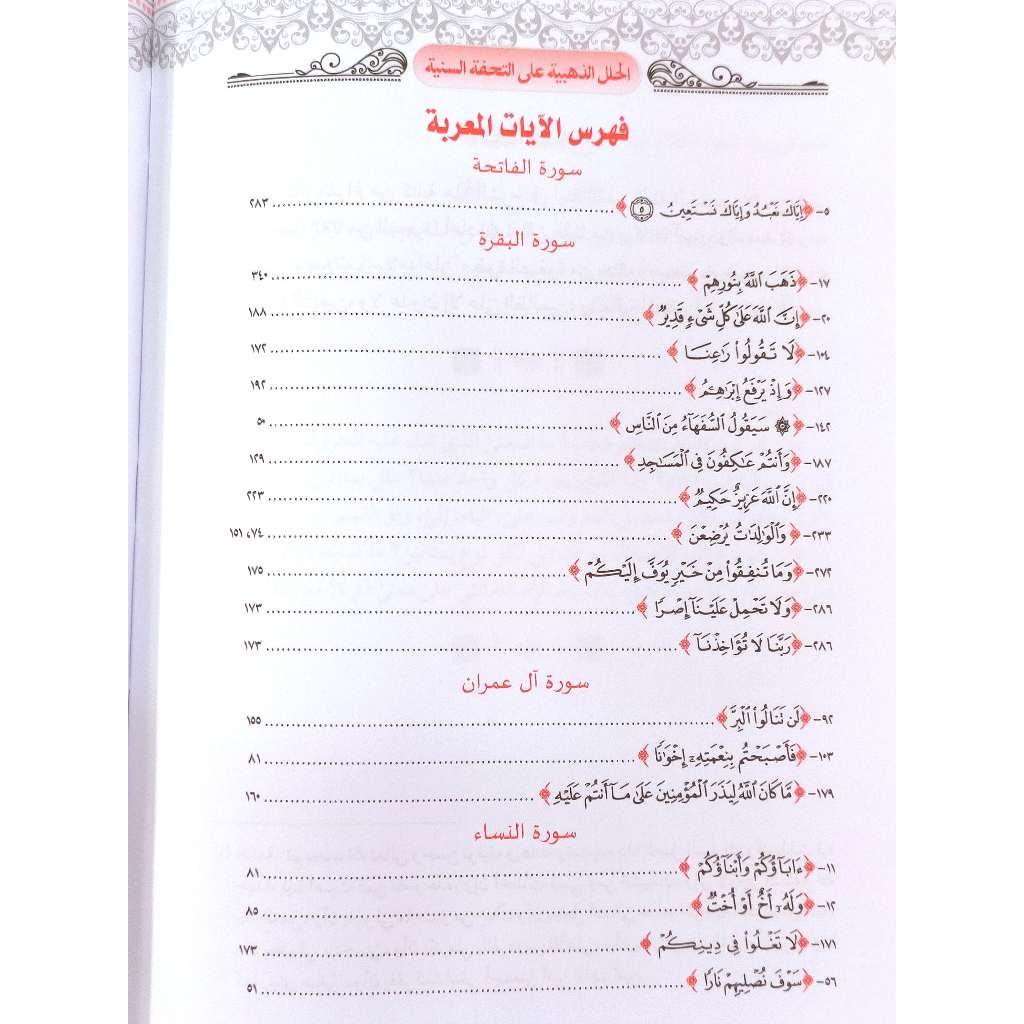 الحلل الذهبية على التحفة السنية
فهرس الآيات المعربة
سورة الفاتحة
٥- ﴿إِيَّاكَ نَعْبُدُ وَإِيَّاكَ نَسْتَعِينُ ٥﴾ ٢٨٣
سورة البقرة
١٧- ﴿ذَهَبَ ٱللَّهُ بِنُورِهِمْ﴾ ٣٤٠
٢٠- ﴿إِنَّ ٱللَّهَ عَلَىٰ كُلِّ شَىْءٍ قَدِيرٌ﴾ ١٨٨
١٠٤- ﴿لَا تَقُولُوا۟ رَٰعِنَا﴾ ١٧٢
١٢٧- ﴿وَإِذْ يَرْفَعُ إِبْرَٰهِـۧمُ﴾ ١٩٢
١٤٢- ﴿۞ سَيَقُولُ ٱلسُّفَهَآءُ مِنَ ٱلنَّاسِ﴾ ٥٠
١٨٧- ﴿وَأَنتُمْ عَٰكِفُونَ فِى ٱلْمَسَٰجِدِ﴾ ١٢٩
٢٢٠- ﴿إِنَّ ٱللَّهَ عَزِيزٌ حَكِيمٌ﴾ ٢٢٣
٢٣٣- ﴿وَٱلْوَٰلِدَٰتُ يُرْضِعْنَ﴾ ٧٤، ١٥١
٢٧٢- ﴿وَمَا تُنفِقُوا۟ مِنْ خَيْرٍ يُوَفَّ إِلَيْكُمْ﴾ ١٧٥
٢٨٦- ﴿وَلَا تَحْمِلْ عَلَيْنَآ إِصْرًا﴾ ١٧٣
٢٨٦- ﴿رَبَّنَا لَا تُؤَاخِذْنَآ﴾ ١٧٣
سورة آل عمران
٩٢- ﴿لَن تَنَالُوا۟ ٱلْبِرَّ﴾ ١٥٥
١٠٣- ﴿فَأَصْبَحْتُم بِنِعْمَتِهِۦٓ إِخْوَٰنًا﴾ ٨١
١٧٩- ﴿مَّا كَانَ ٱللَّهُ لِيَذَرَ ٱلْمُؤْمِنِينَ عَلَىٰ مَآ أَنتُمْ عَلَيْهِ﴾ ١٦٠
سورة النساء
١١- ﴿ءَابَآؤُكُمْ وَأَبْنَآؤُكُمْ﴾ ٨١
١٢- ﴿وَلَهُۥٓ أَخٌ أَوْ أُخْتٌ﴾ ٨٥
١٧١- ﴿لَا تَغْلُوا۟ فِى دِينِكُمْ﴾ ١٧٣
٥٦- ﴿سَوْفَ نُصْلِيهِمْ نَارًا﴾ ٥١